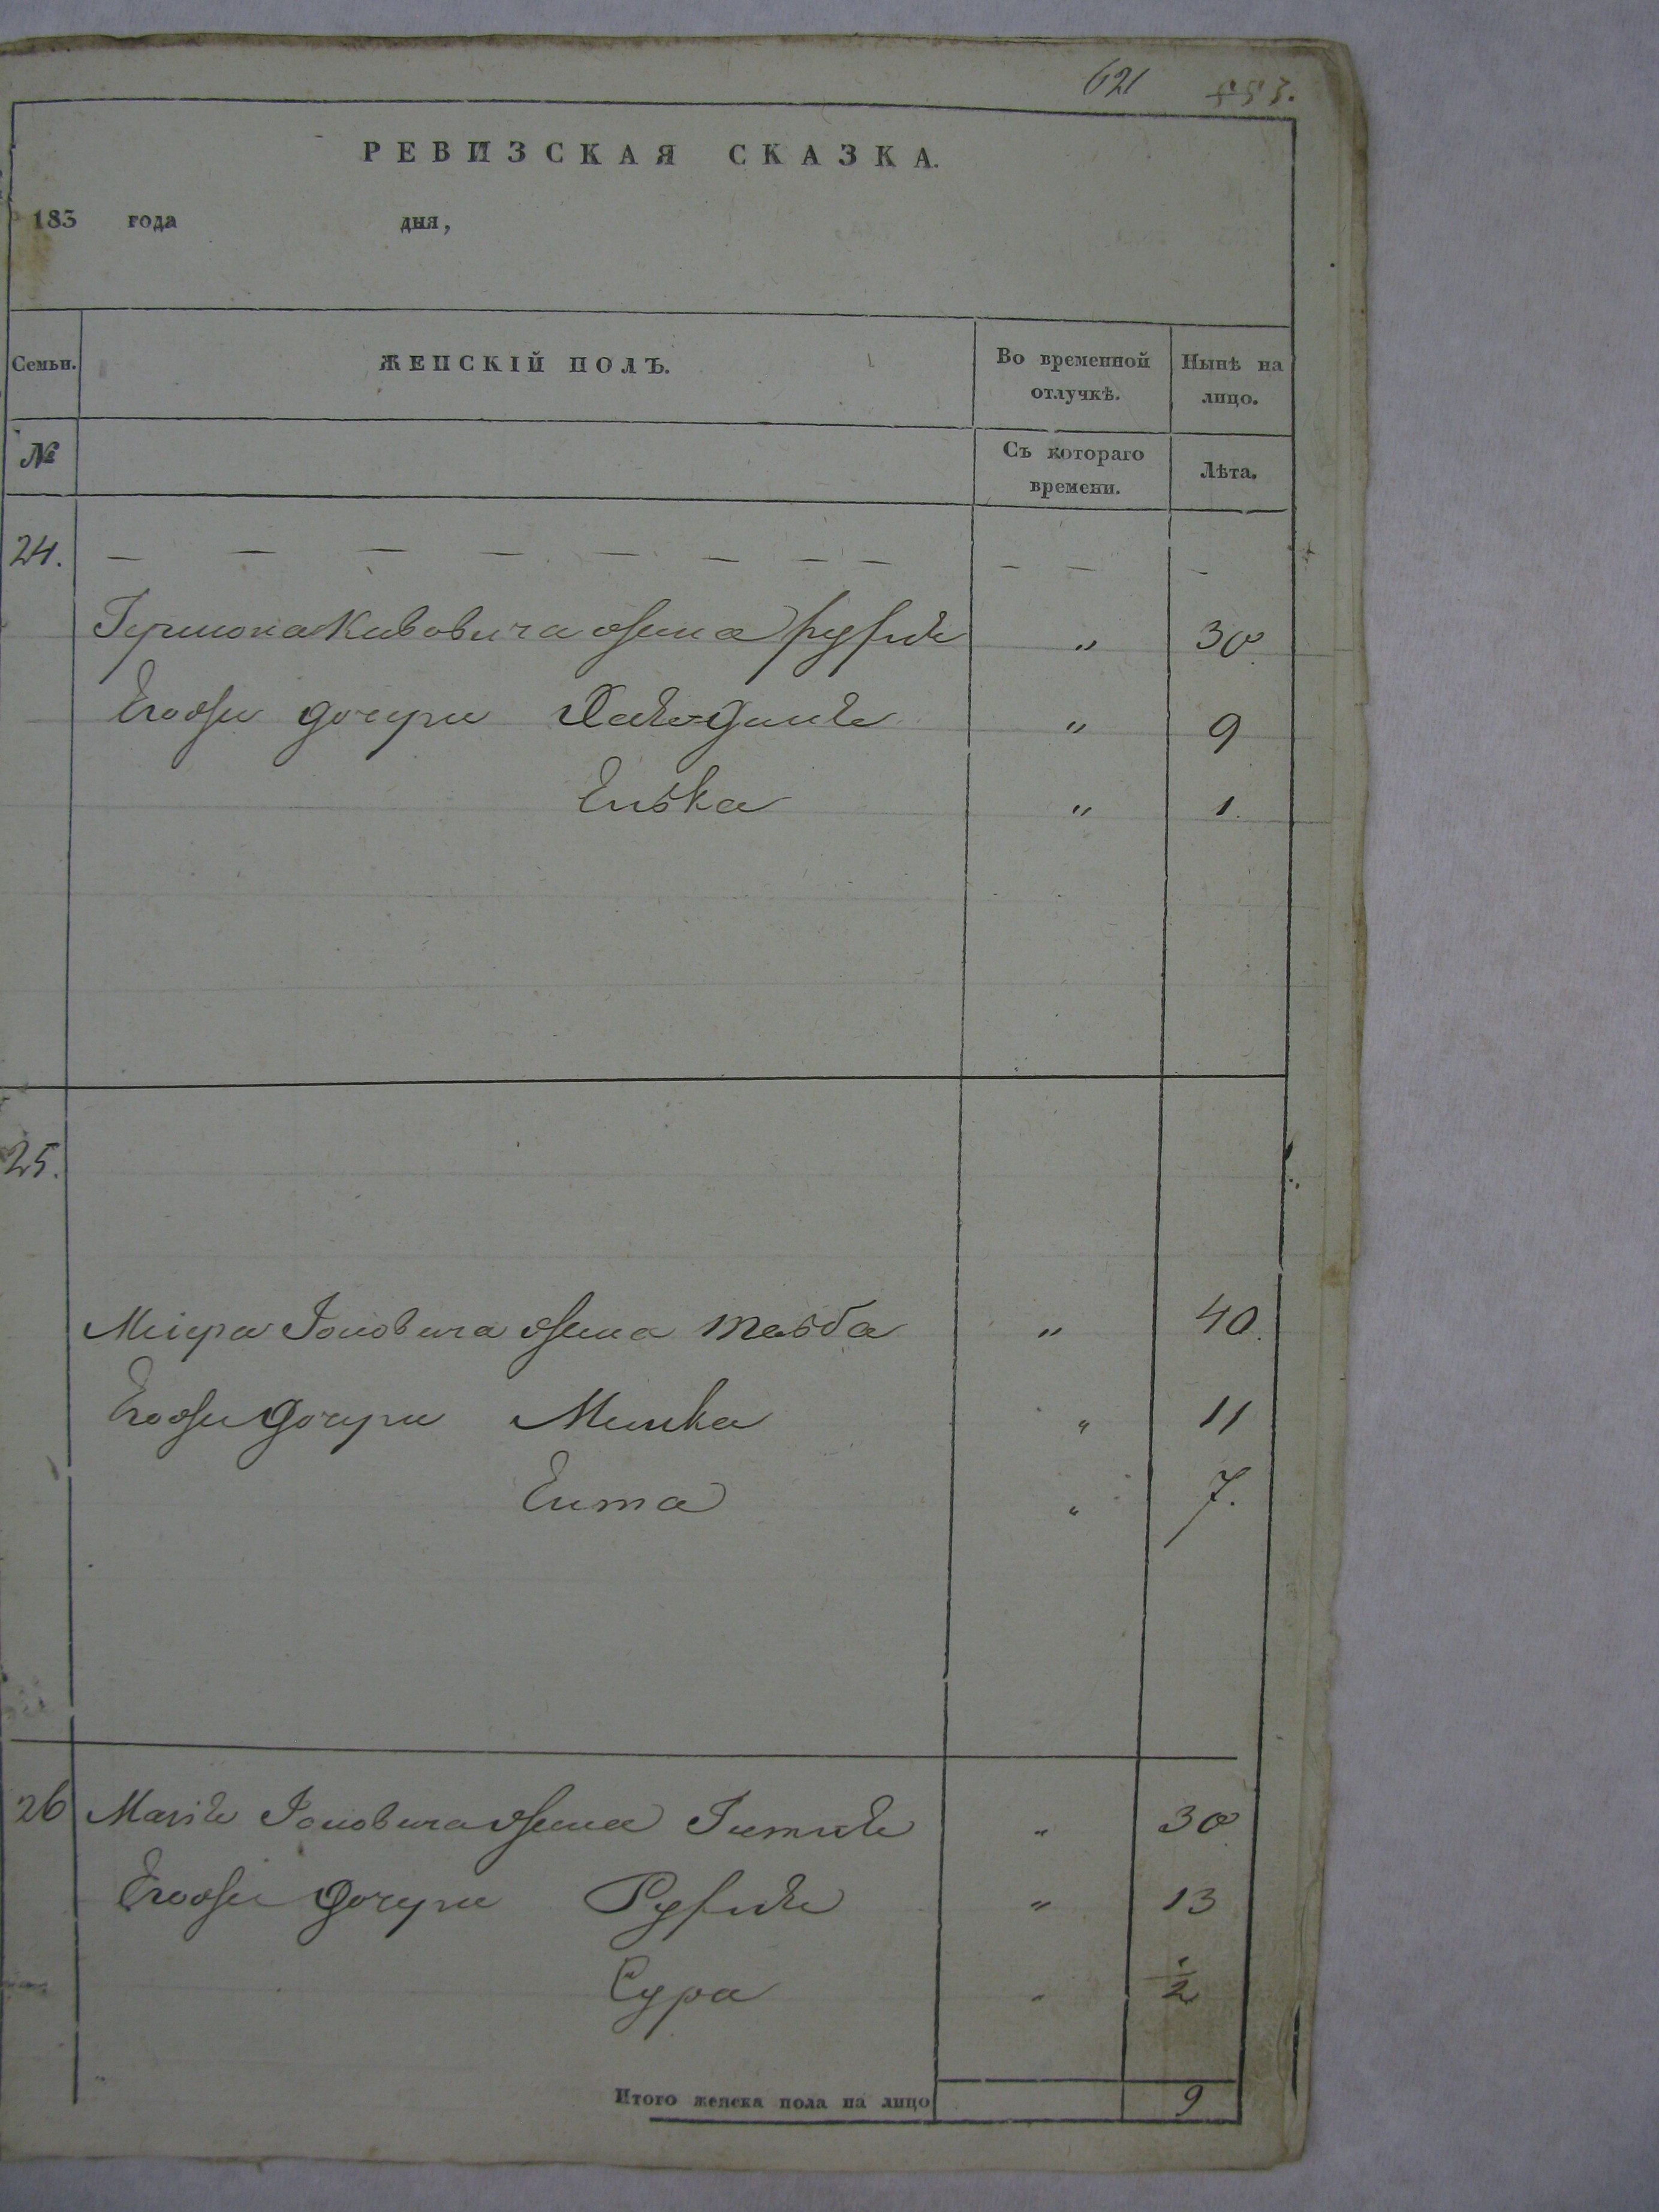 621 553.
РЕВИЗСКАЯ СКАЗКА.
183 года дня,
Семьи. ЖЕНСКІЙ ПОЛЪ. Во временной отлучкѣ. Нынѣ на лицо.
№ Съ котораго времени. Лѣта.
24. — — — — — — — — — — —
Гершона Кивовича жена Рухля „ 30.
Егожъ дочери Хая-Душа „ 9
Енька „ 1.
25.
Меіера Іоновича жена Тавба „ 40.
Егожъ дочери Минка „ 11
Ента „ 7.
26 Іоновича жена „ 30
Егожъ дочери „ 13
Сура „ 1/2
Итого женска пола на лицо 9